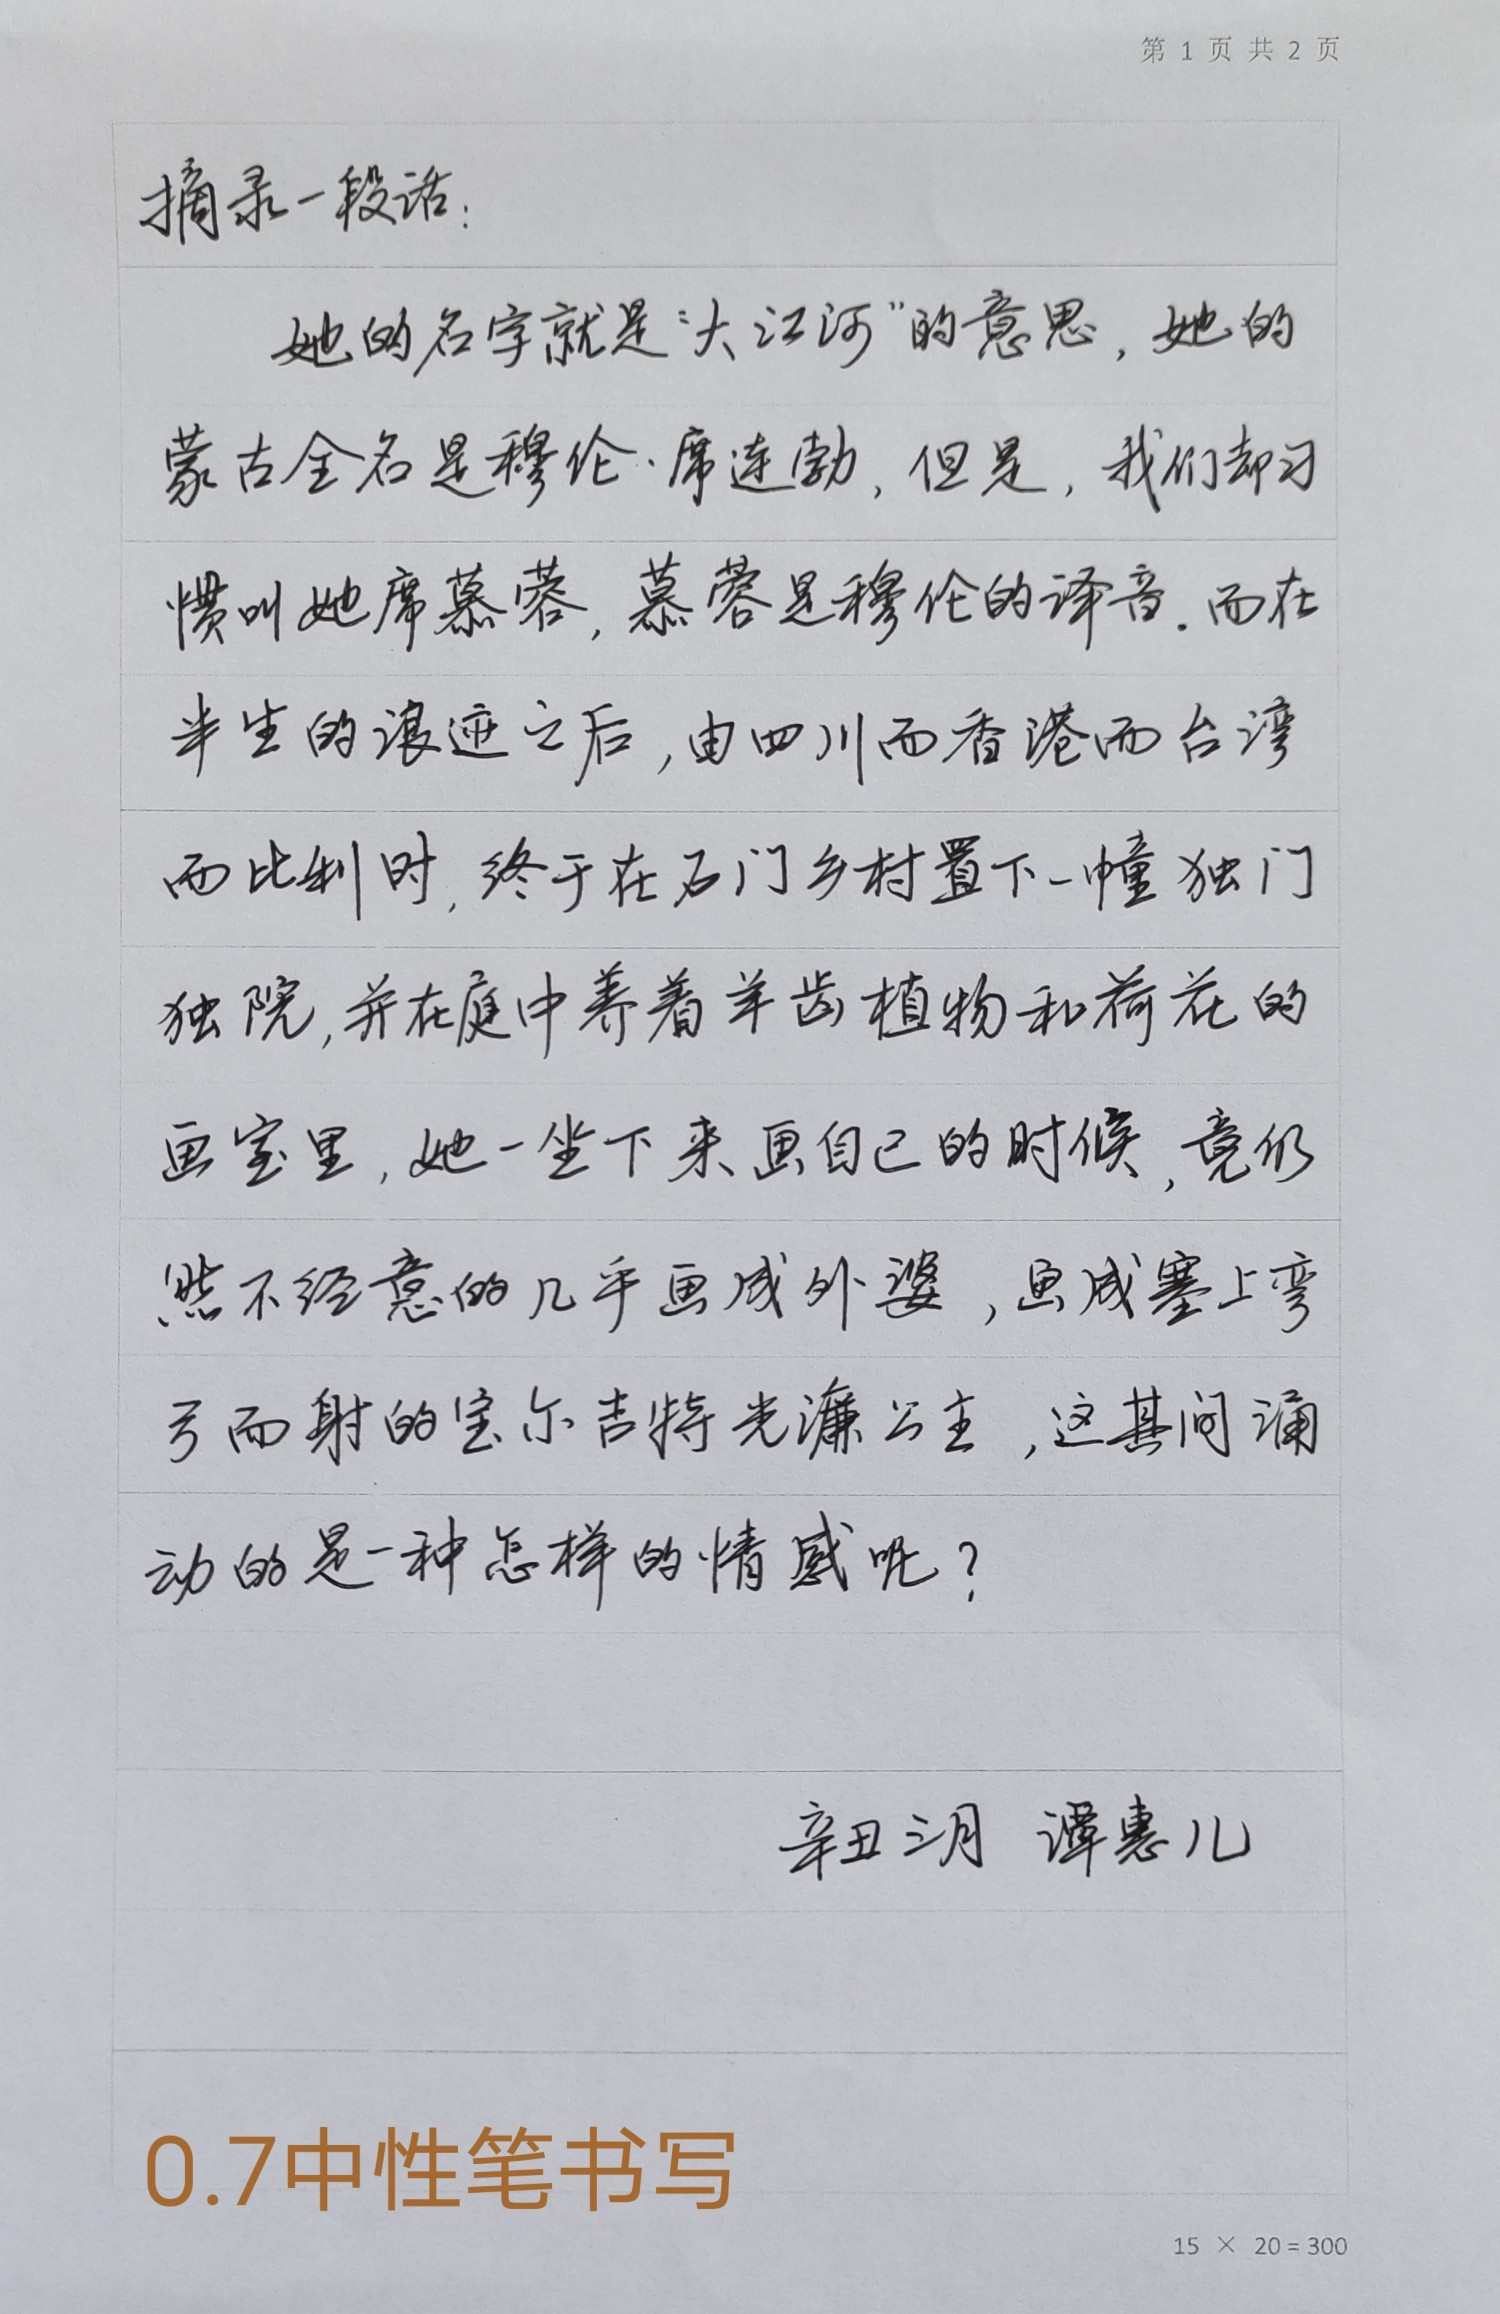 第 1 页 共 2 页
摘录一段话:
她的名字就是“大江河”的意思,她的
蒙古全名是穆伦·席连勃,但是,我们却习
惯叫她席慕蓉,慕蓉是穆伦的译音.而在
半生的浪迹之后,由四川而香港而台湾
而比利时,终于在石门乡村置下一幢独门
独院,并在庭中养着羊齿植物和荷花的
画室里,她一坐下来画自己的时候,竟仍
然不经意的几乎画成外婆,画成塞上弯
弓而射的宝尔吉特光濂公主,这其间涌
动的是一种怎样的情感呢?
辛丑三月 谭惠儿
0.7中性笔书写
15 × 20=300